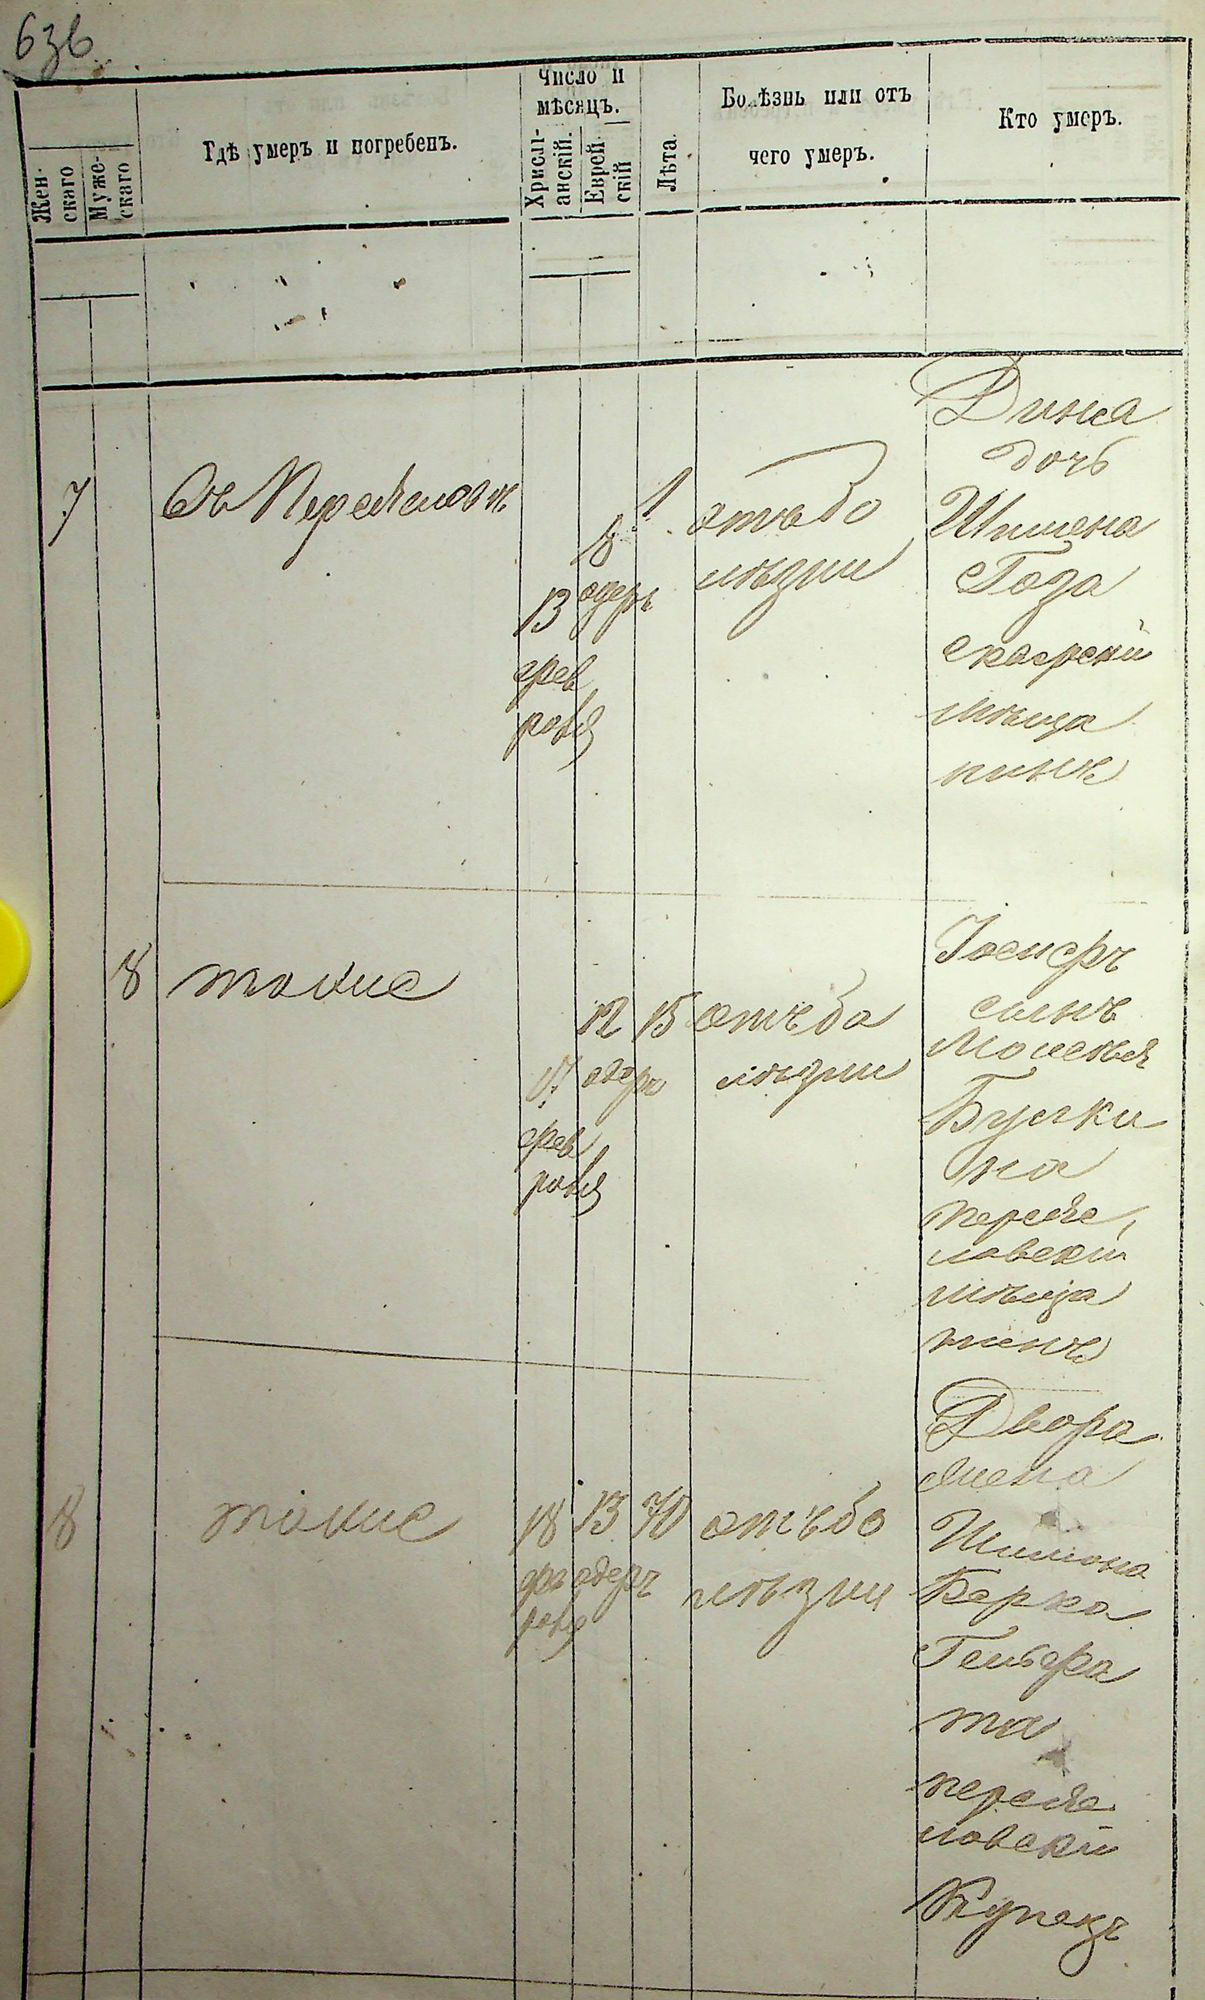 63в
Жен-
скаго
Муже-
скаго
Гдѣ умеръ и погребенъ.
Число и
мѣсяцъ.
Христі-
анскій.
Еврей
скій
Лѣта
Болѣзнь или отъ
чего умеръ.
Кто умеръ.
7
Въ Переяслове
13
фев
раля
18
адеръ
1
отъ бо
лѣзни
Дина
дочь
Шимена
мѣща
нинъ
8
тоже
17
фев
раля
12
адеръ
15
отъ бо
лѣзни
Іосифъ
сынъ
Мошекея
Бушки
на
перея
лавскій
мѣща
нинъ
8
тоже
18
фев
раля
13
адеръ
70
отъ бо
лѣзни
Двора
жена
Шимона
Берка
перея
лавскій
Купецъ